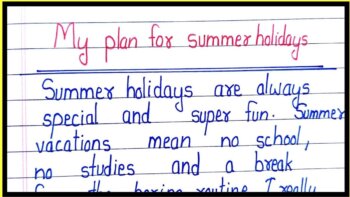 My plan for summer holidays
Summer holidays are always
special and super fun. Summer
vacations mean no school,
no studies and a break
the boring routine I really